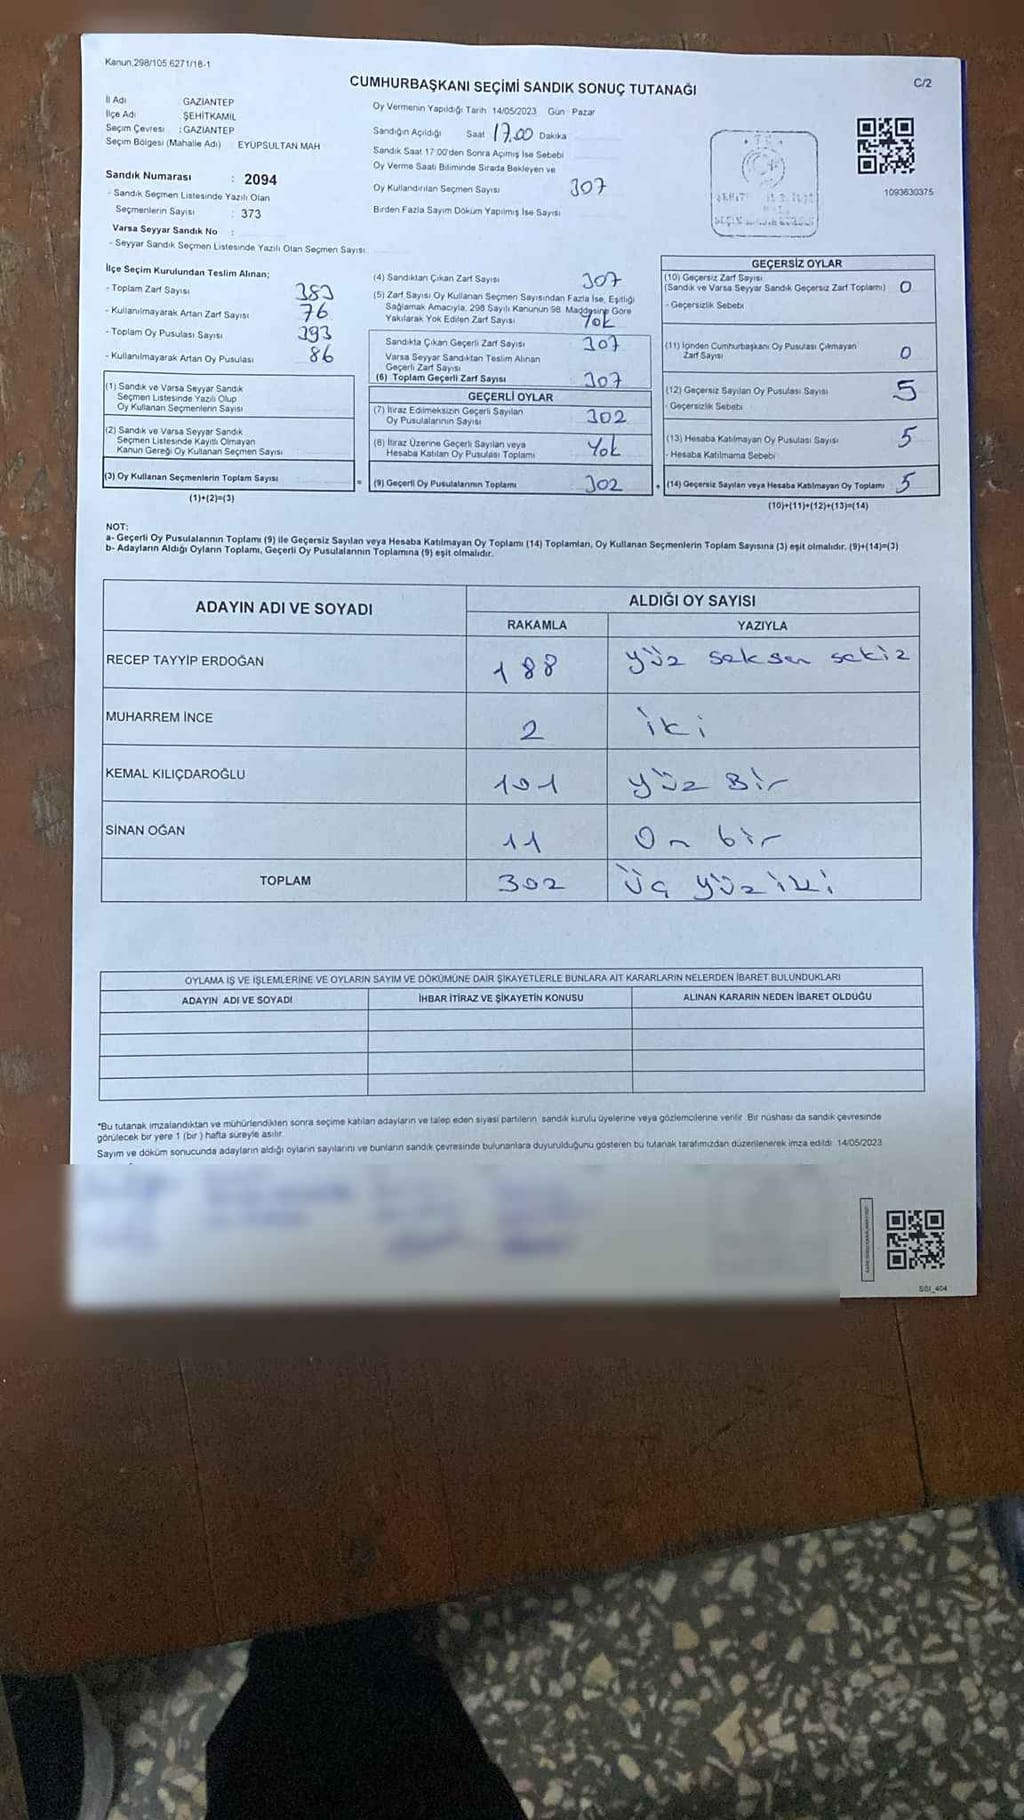 Kanun,298/105.6271/18-1
CUMHURBAŞKANI SEÇİMİ SANDIK SONUÇ TUTANAĞI
C/2
İl Adı GAZİANTEP
İlçe Adı ŞEHİTKAMİL
Seçim Çevresi : GAZİANTEP
Seçim Bölgesi (Mahalle Adı) EYÜPSULTAN MAH
Sandık Numarası : 2094
- Sandık Seçmen Listesinde Yazılı Olan
Seçmenlerin Sayısı : 373
Varsa Seyyar Sandık No :
- Seyyar Sandık Seçmen Listesinde Yazılı Olan Seçmen Sayısı
Oy Vermenin Yapıldığı Tarih 14/05/2023 Gün : Pazar
Sandığın Açıldığı Saat 17.00 Dakika
Sandık Saat 17:00'den Sonra Açımış İse Sebebi
Oy Verme Saati Bitiminde Sırada Bekleyen ve
Oy Kullandırılan Seçmen Sayısı 307
Birden Fazla Sayım Döküm Yapılmış İse Sayısı
1093630375
İlçe Seçim Kurulundan Teslim Alınan;
- Toplam Zarf Sayısı 383
- Kullanılmayarak Artan Zarf Sayısı 76
- Toplam Oy Pusulası Sayısı 393
- Kullanılmayarak Artan Oy Pusulası 86
(1) Sandık ve Varsa Seyyar Sandık
Seçmen Listesinde Yazılı Olup
Oy Kullanan Seçmenlerin Sayısı
(2) Sandık ve Varsa Seyyar Sandık
Seçmen Listesinde Kayıtlı Olmayan
Kanun Gereği Oy Kullanan Seçmen Sayısı
(3) Oy Kullanan Seçmenlerin Toplam Sayısı
(1)+(2)=(3)
(4) Sandıktan Çıkan Zarf Sayısı 307
(5) Zarf Sayısı Oy Kullanan Seçmen Sayısından Fazla İse, Eşitliği
Sağlamak Amacıyla, 298 Sayılı Kanunun 98. Maddesine Göre
Yakılarak Yok Edilen Zarf Sayısı Yok
Sandıkta Çıkan Geçerli Zarf Sayısı 307
Varsa Seyyar Sandıktan Teslim Alınan
Geçerli Zarf Sayısı
(6) Toplam Geçerli Zarf Sayısı 307
GEÇERLİ OYLAR
(7) İtiraz Edilmeksizin Geçerli Sayılan
Oy Pusulalarının Sayısı 302
(8) İtiraz Üzerine Geçerli Sayılan veya
Hesaba Katılan Oy Pusulası Toplamı Yok
=
(9) Geçerli Oy Pusulalarının Toplamı 302
+
GEÇERSİZ OYLAR
(10) Geçersiz Zarf Sayısı
(Sandık ve Varsa Seyyar Sandık Geçersiz Zarf Toplamı) 0
- Geçersizlik Sebebi
(11) İçinden Cumhurbaşkanı Oy Pusulası Çıkmayan
Zarf Sayısı 0
(12) Geçersiz Sayılan Oy Pusulası Sayısı 5
- Geçersizlik Sebebi
(13) Hesaba Katılmayan Oy Pusulası Sayısı 5
- Hesaba Katılmama Sebebi
(14) Geçersiz Sayılan veya Hesaba Katılmayan Oy Toplamı 5
(10)+(11)+(12)+(13)=(14)
NOT:
a- Geçerli Oy Pusulalarının Toplamı (9) ile Geçersiz Sayılan veya Hesaba Katılmayan Oy Toplamı (14) Toplamları, Oy Kullanan Seçmenlerin Toplam Sayısına (3) eşit olmalıdır. (9)+(14)=(3)
b- Adayların Aldığı Oyların Toplamı, Geçerli Oy Pusulalarının Toplamına (9) eşit olmalıdır.
ADAYIN ADI VE SOYADI
ALDIĞI OY SAYISI
RAKAMLA YAZIYLA
RECEP TAYYİP ERDOĞAN 188 yüz seksen sekiz
MUHARREM İNCE 2 iki
KEMAL KILIÇDAROĞLU 101 yüz Bir
SİNAN OĞAN 11 On bir
TOPLAM 302 üç yüz iki
OYLAMA İŞ VE İŞLEMLERİNE VE OYLARIN SAYIM VE DÖKÜMÜNE DAİR ŞİKAYETLERLE BUNLARA AİT KARARLARIN NELERDEN İBARET BULUNDUKLARI
ADAYIN ADI VE SOYADI İHBAR İTİRAZ VE ŞİKAYETİN KONUSU ALINAN KARARIN NEDEN İBARET OLDUĞU
*Bu tutanak imzalandıktan ve mühürlendikten sonra seçime katılan adayların ve talep eden siyasi partilerin sandık kurulu üyelerine veya gözlemcilerine verilir. Bir nüshası da sandık çevresinde
görülecek bir yere 1 (bir) hafta süreyle asılır
Sayım ve döküm sonucunda adayların aldığı oyların sayılarını ve bunların sandık çevresinde bulunanlara duyurulduğunu gösteren bu tutanak tarafımızdan düzenlenerek imza edildi. 14/05/2023